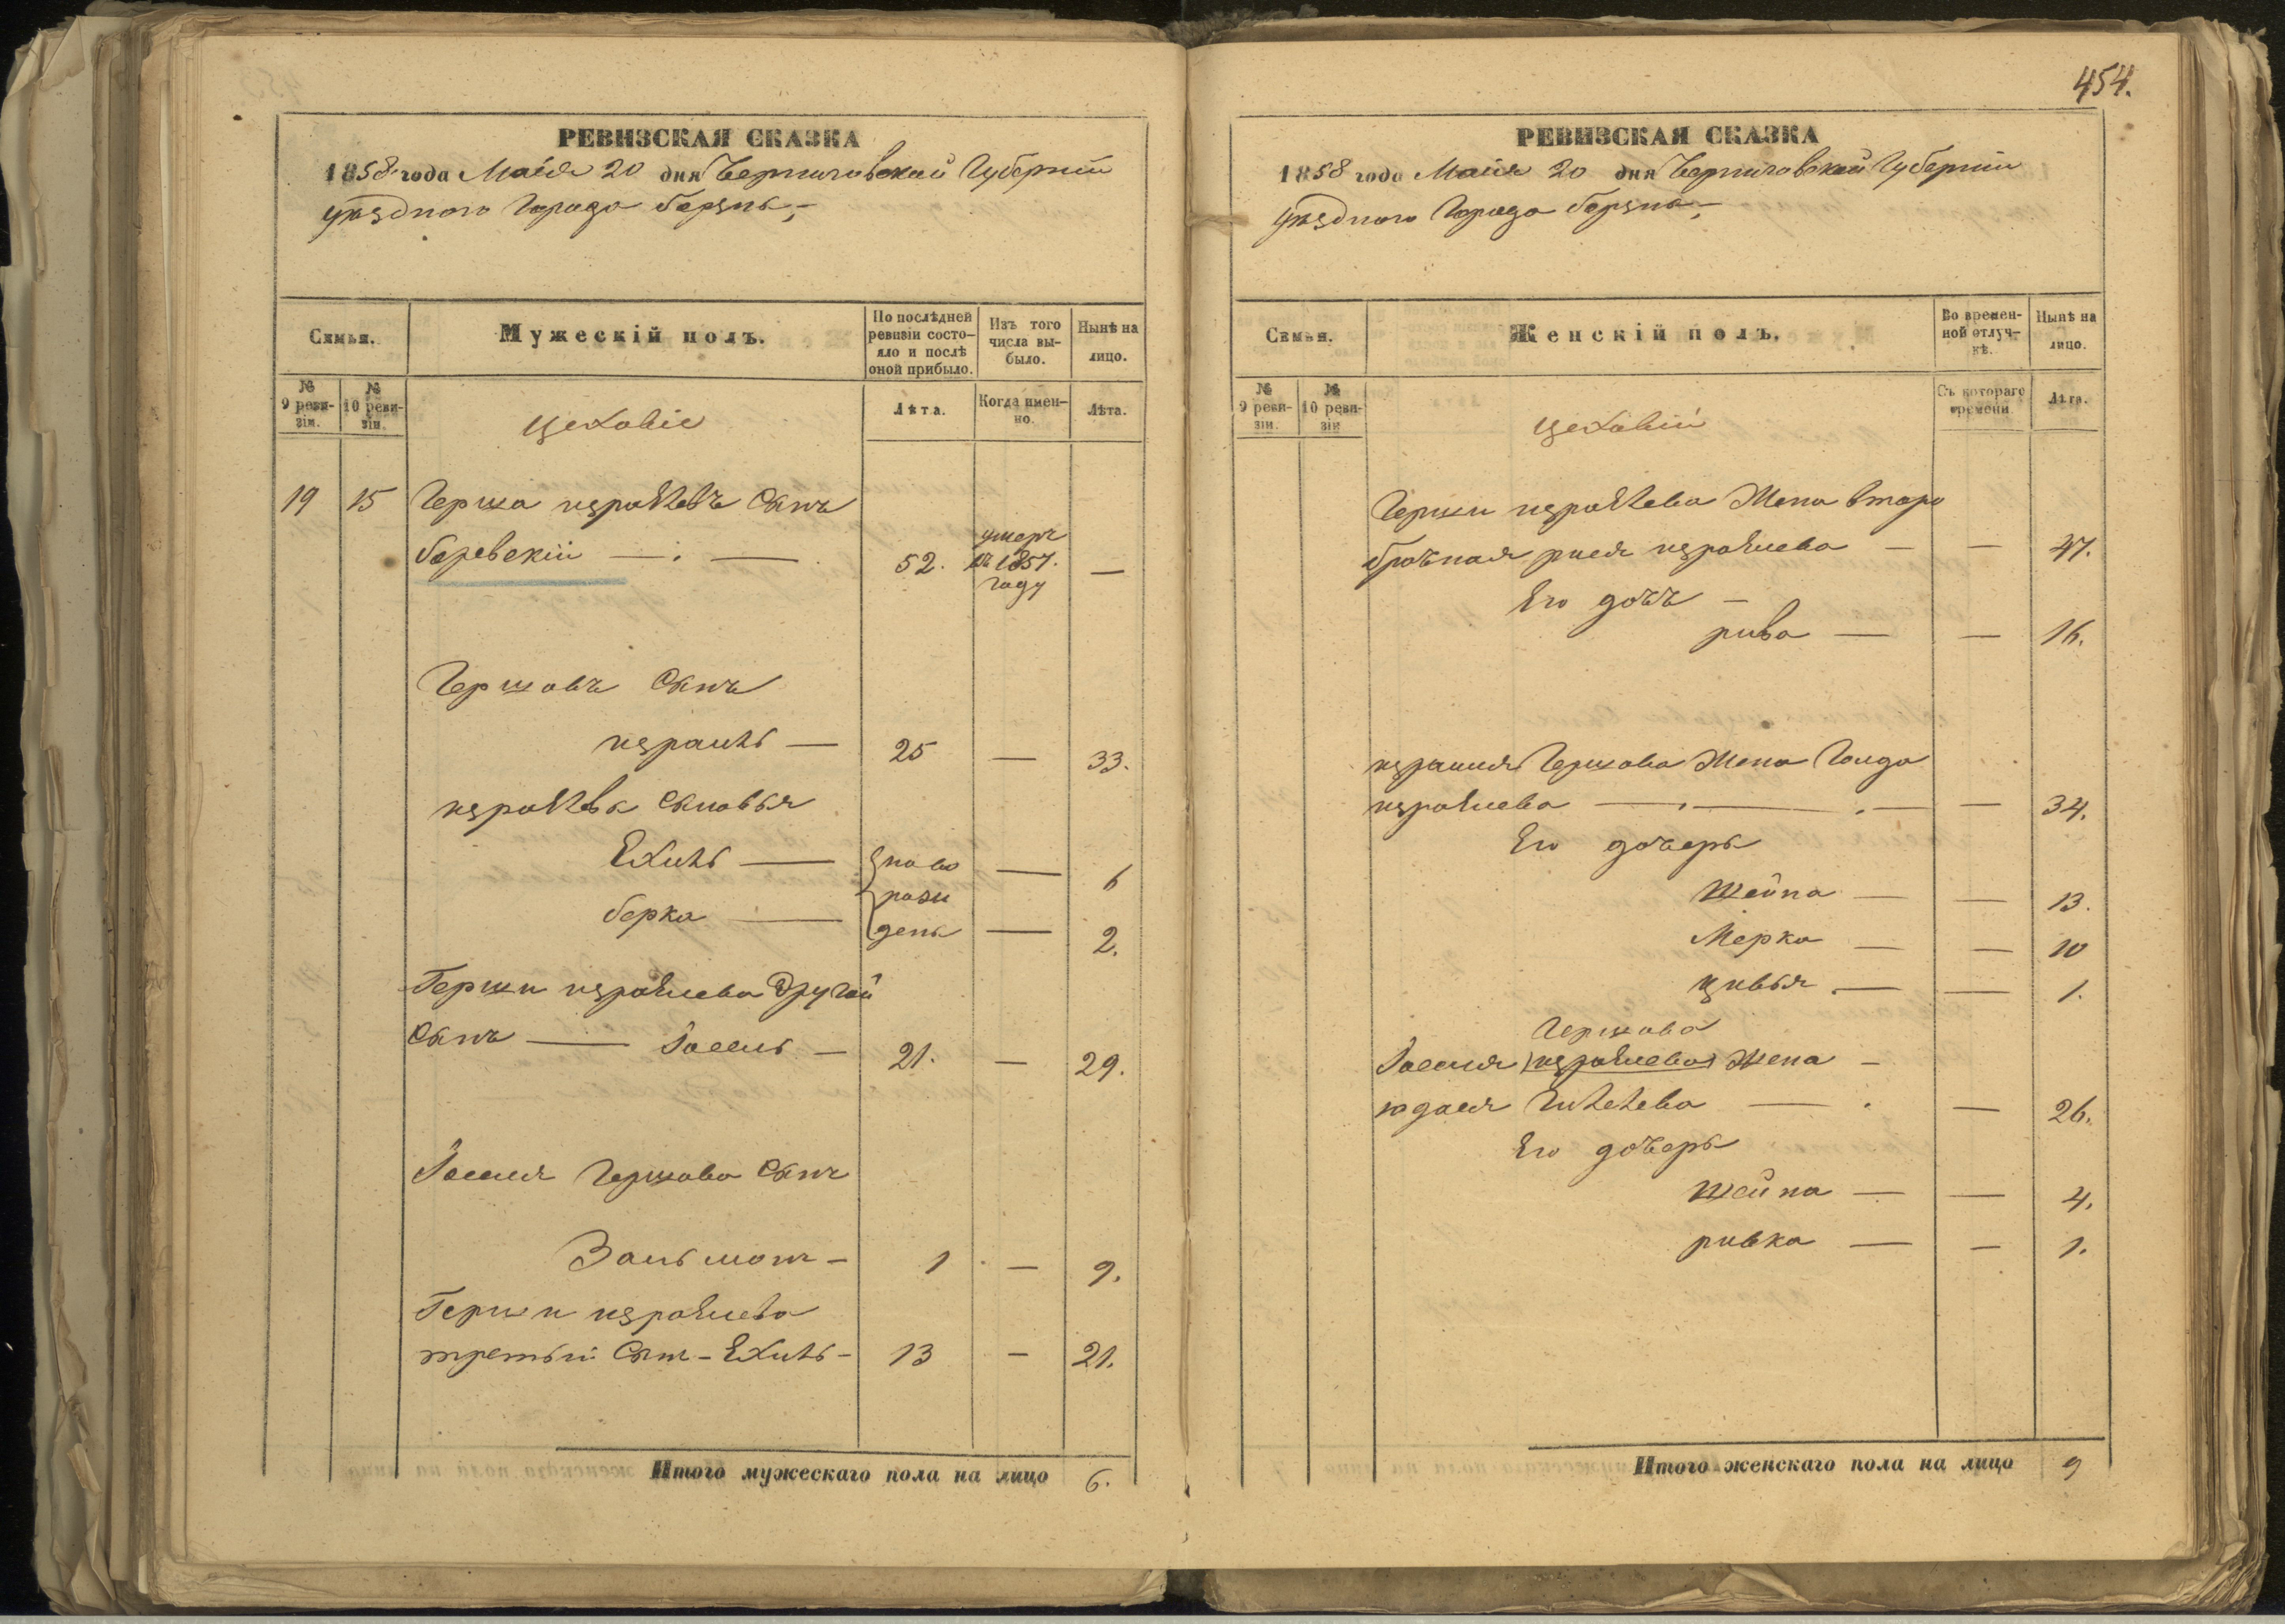 РЕВИЗСКАЯ СКАЗКА
1858 года Маія 20 дня Черниговской Губерніи
уѣзднаго Города борзнѣ,-
Семья.
Мужескій полъ.
По послѣдней ревизіи состояло и послѣ оной прибыло.
Изъ того числа выбыло.
Нынѣ на лицо.
№ 9 ревизіи.
№ 10 ревизіи.
Лѣта.
Когда именно.
Лѣта.
цеховіе
19 15 Герша израѣлевъ Сынъ
умеръ
52. въ 1857. —
году
Гершовъ Сынъ
израиль — 25 — 33.
Сыновья
Ехиль — ново — 6
рожи
берка — день — 2.
Герши израѣлева Другой
Сынъ — Іосель — 21. — 29.
Іоселя Гершова Сынъ
Зальмонъ - 1 — 9.
Герши израѣлева
третьи Сынъ - Ехиль - 13 — 21.
Итого мужескаго пола на лицо 6.
454.
РЕВИЗСКАЯ СКАЗКА
1858 года Маія 20 дня Черниговской Губерніи
уѣзднаго Города борзнѣ,-
Семья.
Женскій полъ.
Во временной отлучкѣ.
Нынѣ на лицо.
№ 9 ревизіи.
№ 10 ревизіи
Съ котораго времени
Лѣта.
цеховіи
Герши израѣлева Жена второ
брачная израѣлева — — 47.
Его дочь —
рива — — 16.
израиля Гершова Жена Голда
израѣлева — — 34.
Его дочеры
Шейна — — 13.
Мерка — — 10
цивья — — 1.
Гершова
Іоселя израѣлева Жена —
— — 26.
Его дочеры
Шейна — — 4.
ривка — — 1.
Итого женскаго пола на лицо 9